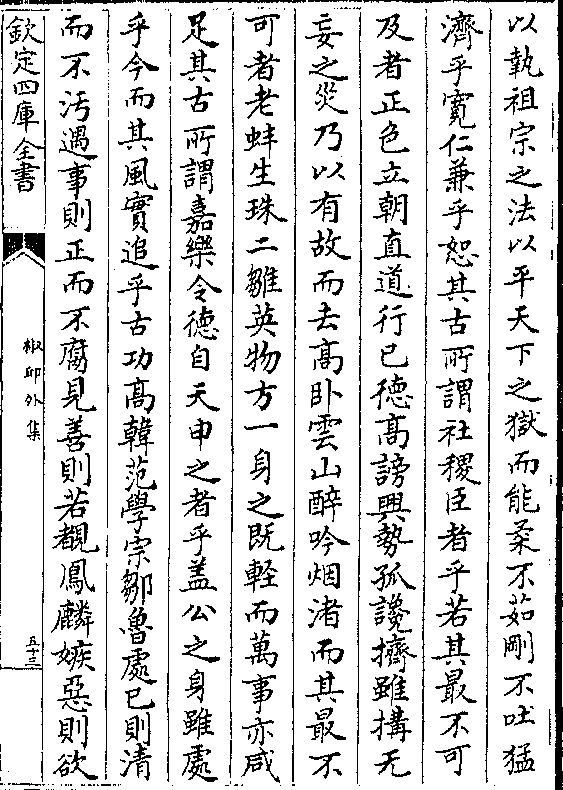 以執祖宗之法以平天下之獄而能柔不茹剛不吐猛
濟乎寛仁兼乎恕其古所謂社稷臣者乎若其最不可
及者正色立朝直道行已徳髙謗興勢孤讒擠雖搆无
妄之災乃以有故而去髙卧雲山醉吟烟渚而其最不
可者老蚌生珠二雛英物方一身之既軽而萬事亦咸
足其古所謂嘉樂令徳自天申之者乎盖公之身雖處
乎今而其風實追乎古功髙韓范學宗鄒魯處已則清
而不汚遇事則正而不腐見善則若覩鳳麟嫉惡則欲
欽定四庫全書
椒邱外集
五十三